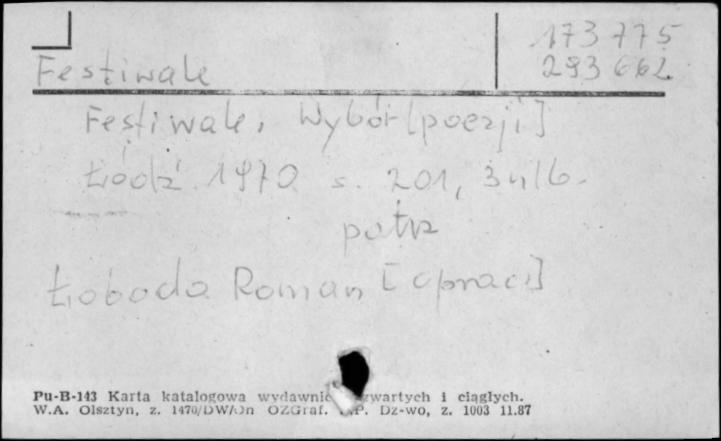 173 775
Festiwale
293 662
Festiwale. Wybór [poezji]
Łódź 1970 s. 201, 3 nlb.
patrz
Łoboda Roman [oprac.]
Pu-B-143 Karta katalogowa zwartych i ciągłych.
W.A. Olsztyn, z. 1470/DW/Dn OZGraf. Dz-wo, z. 1003 11.87